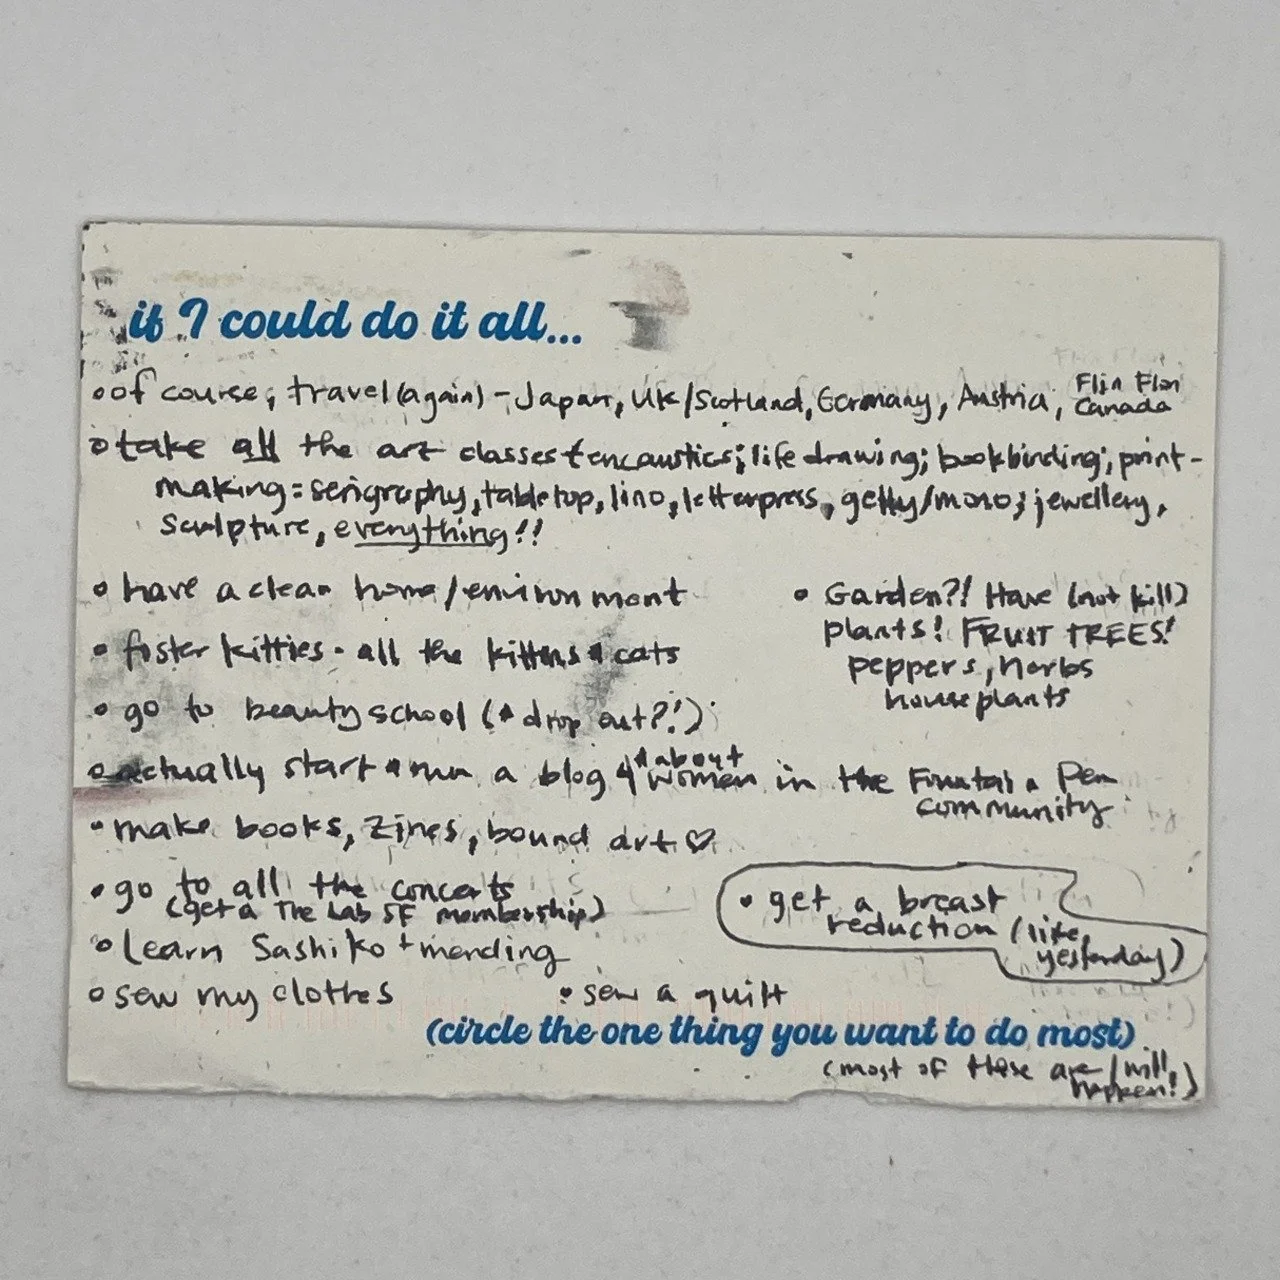 if I could do it all...
• of course; travel (again) - Japan, UK/Scotland, Germany, Austria, Flin Flon Canada
• take all the art classes encaustics; life drawing; bookbinding; print-
making: serigraphy, tabletop, lino, letterpress, gelly/mono; jewellery,
sculpture, everything!!
• have a clean home/environment
• foster kitties - all the kittens & cats
• go to beauty school (& drop out?!)
• actually start & run a blog about women in the Fountain Pen
community
• make books, zines, bound art ♡
• go to all the concerts
(get a The Lab SF membership)
• learn Sashiko + mending
• sew my clothes
• Garden?! Have (not kill)
plants! FRUIT TREES!
peppers, herbs
houseplants
• get a breast
reduction (like,
yesterday)
• sew a quilt
(circle the one thing you want to do most)
(most of these are/will
happen!)